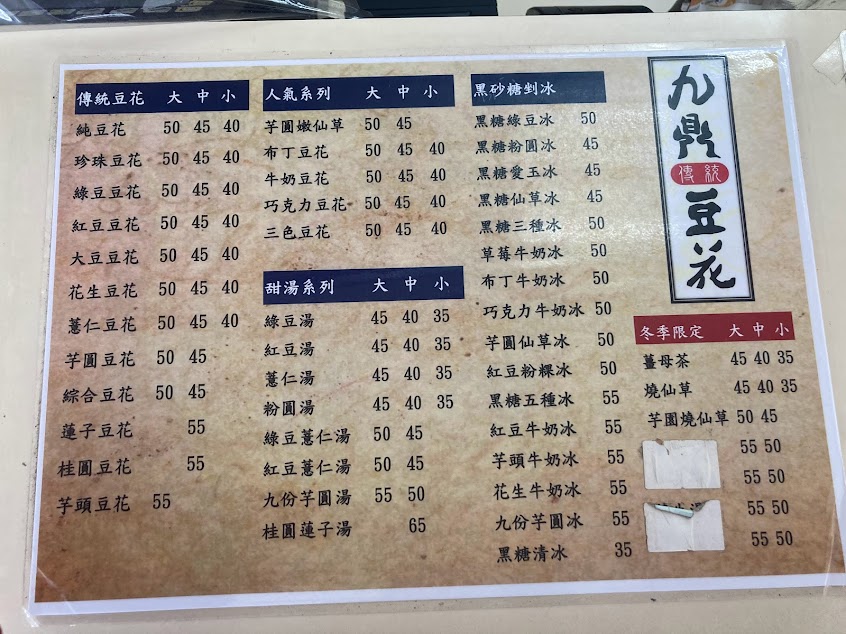 傳統豆花 大 中 小
純豆花 50 45 40
珍珠豆花 50 45 40
綠豆豆花 50 45 40
紅豆豆花 50 45 40
大豆豆花 50 45 40
花生豆花 50 45 40
薏仁豆花 50 45 40
芋圓豆花 50 45
綜合豆花 50 45
蓮子豆花 55
桂圓豆花 55
芋頭豆花 55
人氣系列 大 中 小
芋圓嫩仙草 50 45
布丁豆花 50 45 40
牛奶豆花 50 45 40
巧克力豆花 50 45 40
三色豆花 50 45 40
甜湯系列 大 中 小
綠豆湯 45 40 35
紅豆湯 45 40 35
薏仁湯 45 40 35
粉圓湯 45 40 35
綠豆薏仁湯 50 45
紅豆薏仁湯 50 45
九份芋圓湯 55 50
桂圓蓮子湯 65
黑砂糖剉冰
黑糖綠豆冰 50
黑糖粉圓冰 45
黑糖愛玉冰 45
黑糖仙草冰 45
黑糖三種冰 50
草莓牛奶冰 50
布丁牛奶冰 50
巧克力牛奶冰 50
芋圓仙草冰 50
紅豆粉粿冰 50
黑糖五種冰 55
紅豆牛奶冰 55
芋頭牛奶冰 55
花生牛奶冰 55
九份芋圓冰 55
黑糖清冰 35
九鼎
傳統
豆花
冬季限定 大 中 小
薑母茶 45 40 35
燒仙草 45 40 35
芋圓燒仙草 50 45
55 50
55 50
55 50
55 50